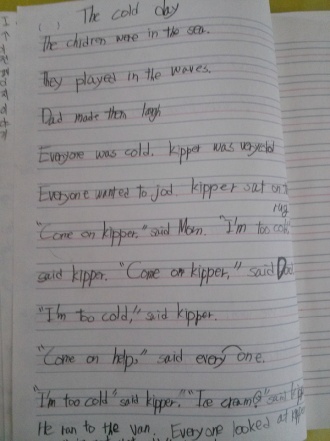 ( ) The cold day
The chidren were in the sea.
They played in the waves.
Dad made then laugh
Everyone was cold. kipper was very cold
Everyone wanted to jod. kipper sat on a
rug
"Come on kipper," said Mom. "I'm too cold,"
said kipper. "Come on kipper," said Dad
"I'm too cold," said kipper.
"Come on help," said every one.
"I'm too cold" said kipper. "Ice cream?" said
He ran to the van. Everyone looked at